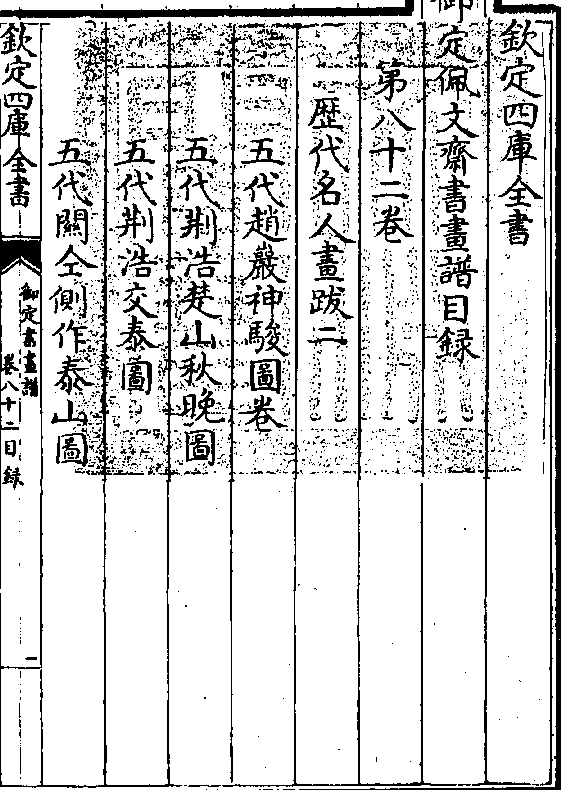 欽定四庫全書
御定佩文齋書畫譜目録
第八十二卷
歴代名人畫跋二
五代趙巖神駿圖卷
五代荆浩楚山秋晚圖
五代荆浩交泰圖
五代關仝側作泰山圖
欽定四庫全書
御定書畫譜
卷八十二目録
一